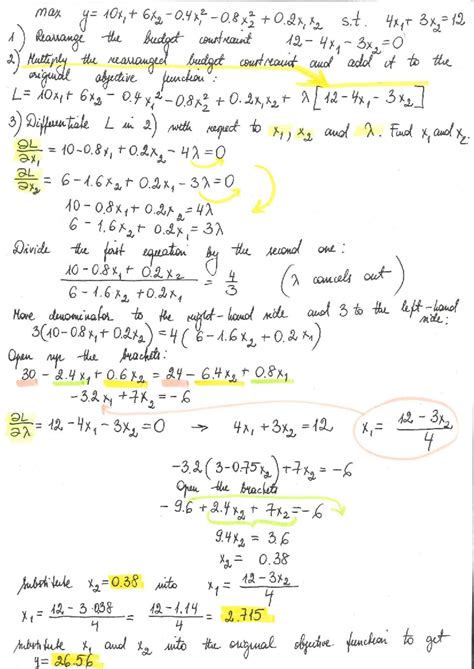 max y = 10x₁ + 6x₂ - 0.4x₁² - 0.8x₂² + 0.2x₁x₂ s.t. 4x₁ + 3x₂ = 12
1) Rearrange the budget constraint 12 - 4x₁ - 3x₂ = 0
2) Multiply the rearranged budget constraint and add it to the
original objective function:
L = 10x₁ + 6x₂ - 0.4x₁² - 0.8x₂² + 0.2x₁x₂ + λ[12 - 4x₁ - 3x₂]
3) Differentiate L in 2) with respect to x₁, x₂ and λ. Find x₁ and x₂.
∂L/∂x₁ = 10 - 0.8x₁ + 0.2x₂ - 4λ = 0
∂L/∂x₂ = 6 - 1.6x₂ + 0.2x₁ - 3λ = 0
10 - 0.8x₁ + 0.2x₂ = 4λ
6 - 1.6x₂ + 0.2x₁ = 3λ
Divide the first equation by the second one:
(10 - 0.8x₁ + 0.2x₂)/(6 - 1.6x₂ + 0.2x₁) = 4/3 (λ cancels out)
Move denominator to the right-hand side and 3 to the left-hand
side:
3(10 - 0.8x₁ + 0.2x₂) = 4(6 - 1.6x₂ + 0.2x₁)
Open up the brackets:
30 - 2.4x₁ + 0.6x₂ = 24 - 6.4x₂ + 0.8x₁
-3.2x₁ + 7x₂ = -6
∂L/∂λ = 12 - 4x₁ - 3x₂ = 0 → 4x₁ + 3x₂ = 12 x₁ = (12 - 3x₂)/4
-3.2(3 - 0.75x₂) + 7x₂ = -6
Open the brackets
-9.6 + 2.4x₂ + 7x₂ = -6
9.4x₂ = 3.6
x₂ = 0.38
Substitute x₂ = 0.38 into x₁ = (12 - 3x₂)/4
x₁ = (12 - 3·0.38)/4 = (12 - 1.14)/4 = 2.715
Substitute x₁ and x₂ into the original objective function to get
y = 26.56